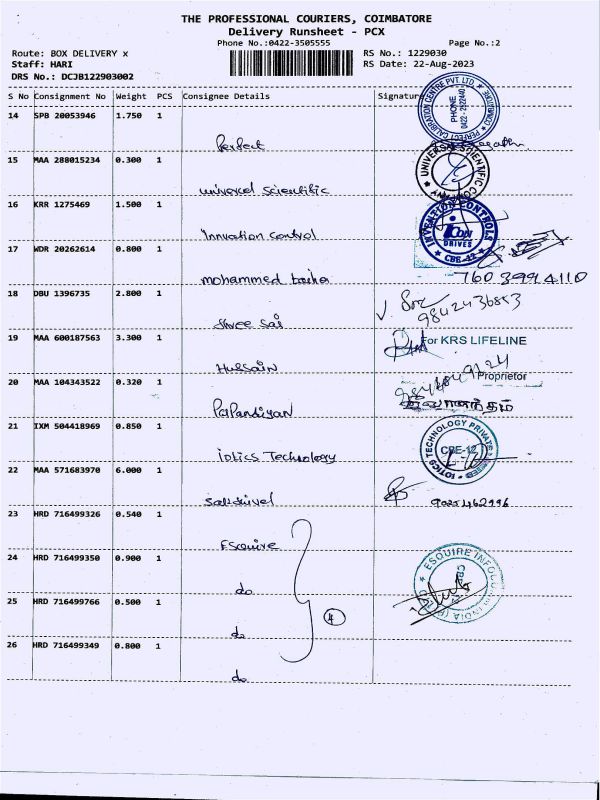 THE PROFESSIONAL COURIERS, COIMBATORE
Delivery Runsheet - PCX
Phone No.:0422-3505555 Page No.:2
Route: BOX DELIVERY x RS No.: 1229030
Staff: HARI RS Date: 22-Aug-2023
DRS No.: DCJB122903002
S No Consignment No Weight PCS Consignee Details Signature
14 SPB 20053946 1.750 1
PERFECT CALIBRATION CENTRE PVT. LTD
PHONE 0422
Perfect
15 MAA 288015234 0.300 1
UNIVERSAL SCIENTIFIC COMPANY
Universal Scientific
16 KRR 1275469 1.500 1
Innvation control
INVENTION CONTROLS
iCon
DRIVES
CBE-12
17 WDR 20262614 0.800 1
mohammed
7603994110
18 DBU 1396735 2.800 1
9842436853
Shree Sai
19 MAA 600187563 3.300 1
For KRS LIFELINE
Hussain
20 MAA 104343522 0.320 1
Proprietor
Papandiyan
21 IXM 504418969 0.850 1
IOTICS TECHNOLOGY PRIVATE
CBE-12
iotics Technology
22 MAA 571683970 6.000 1
23 HRD 716499326 0.540 1
Esquire
24 HRD 716499350 0.900 1
do
ESQUIRE INFOCOM INDIA
25 HRD 716499766 0.500 1
4
do
26 HRD 716499349 0.800 1
do